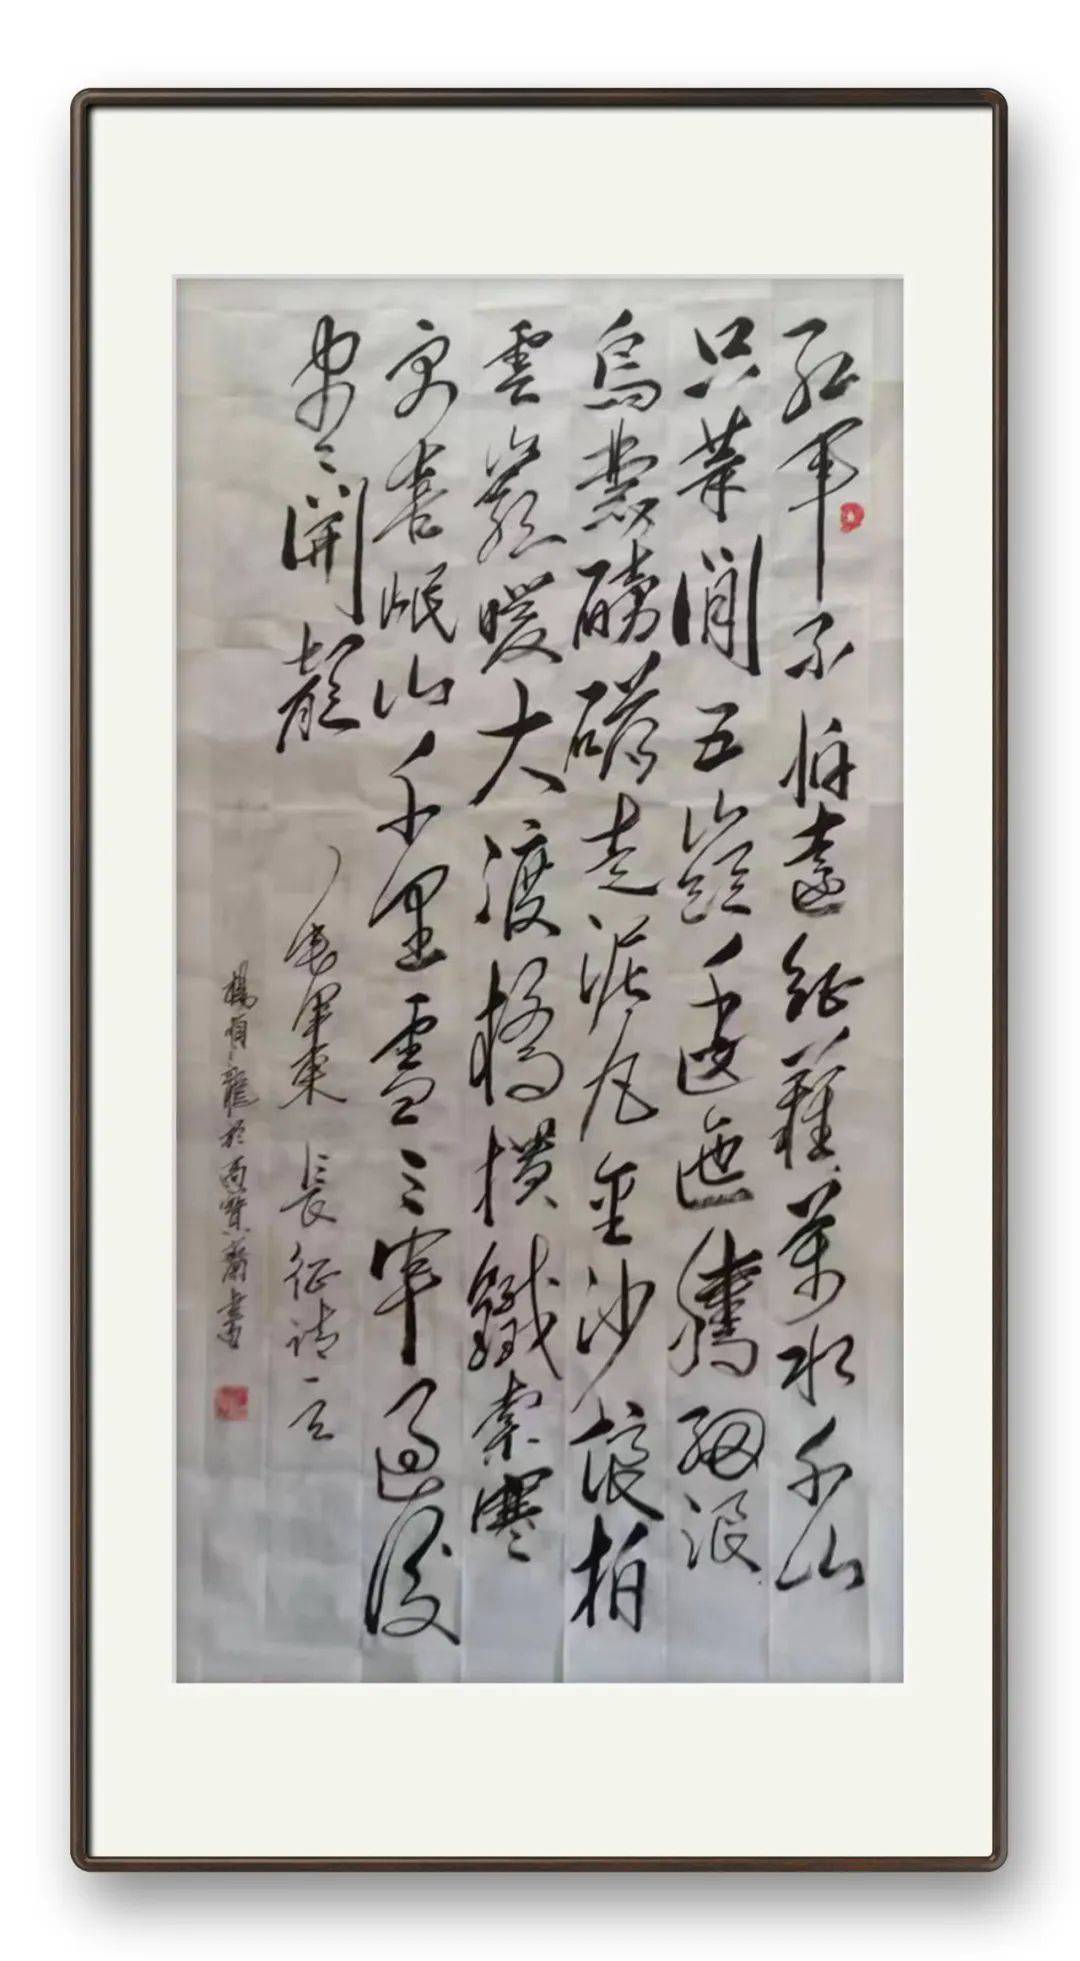 紅軍不怕遠征難萬水千山
只等閒五嶺逶迤騰細浪
烏蒙磅礴走泥丸金沙浪拍
雲崖暖大渡橋橫鐵索寒
更喜岷山千里雪三軍過後
盡開顏
毛澤東 長征詩一首
楊龍於齋書